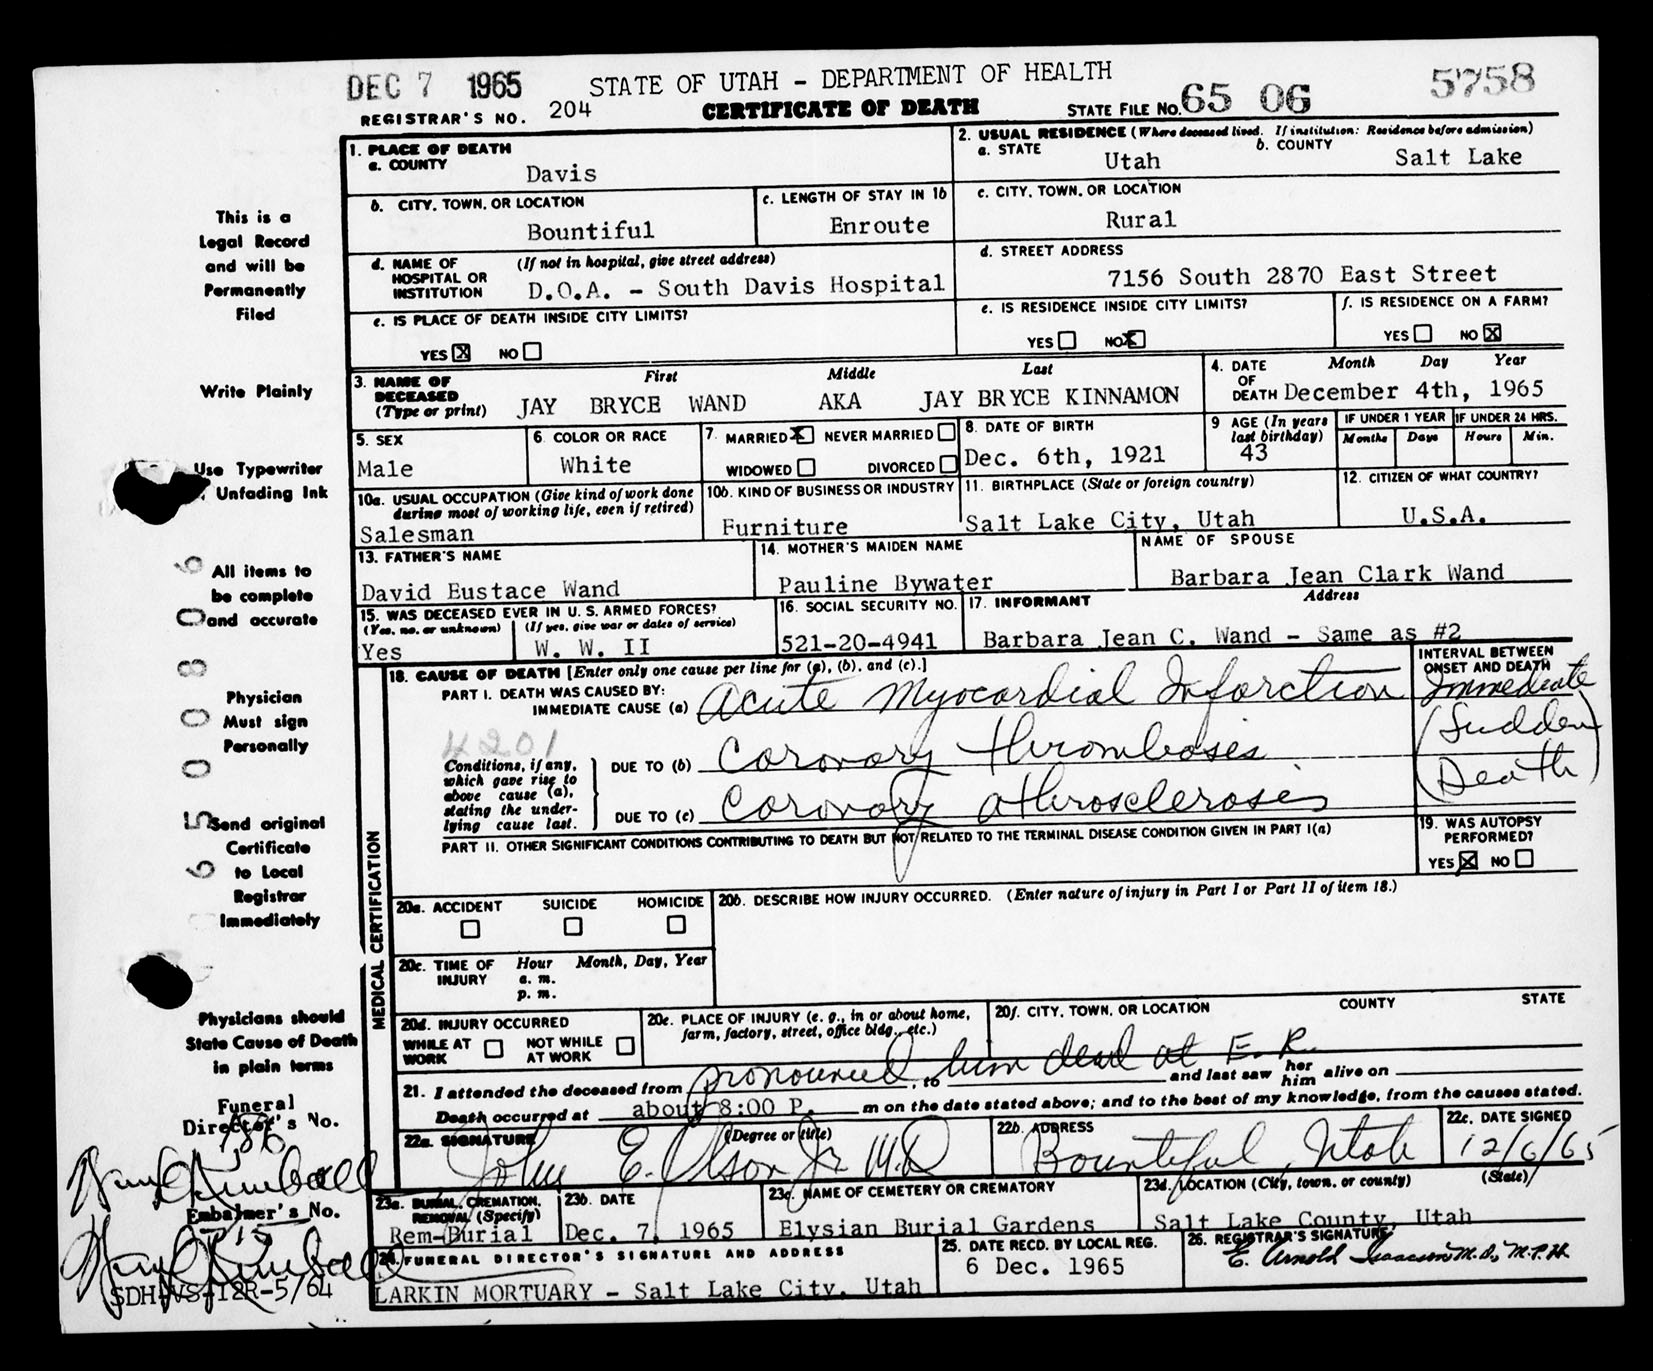 DEC 7 1965 STATE OF UTAH - DEPARTMENT OF HEALTH 5758
REGISTRAR'S NO. 204 CERTIFICATE OF DEATH STATE FILE NO. 65 06
1. PLACE OF DEATH
a. COUNTY Davis
2. USUAL RESIDENCE (Where deceased lived. If institution: Residence before admission)
a. STATE Utah b. COUNTY Salt Lake
b. CITY, TOWN, OR LOCATION Bountiful
c. LENGTH OF STAY IN 1b Enroute
c. CITY, TOWN, OR LOCATION
Rural
d. NAME OF HOSPITAL OR INSTITUTION (If not in hospital, give street address)
D.O.A. - South Davis Hospital
d. STREET ADDRESS
7156 South 2870 East Street
e. IS PLACE OF DEATH INSIDE CITY LIMITS?
YES X NO
e. IS RESIDENCE INSIDE CITY LIMITS?
YES NO X
f. IS RESIDENCE ON A FARM?
YES NO X
3. NAME OF DECEASED (Type or print) First Middle Last
JAY BRYCE WAND AKA JAY BRYCE KINNAMON
4. DATE OF DEATH Month Day Year
December 4th, 1965
5. SEX
Male
6. COLOR OR RACE
White
7. MARRIED X NEVER MARRIED
WIDOWED DIVORCED
8. DATE OF BIRTH
Dec. 6th, 1921
9 AGE (In years last birthday)
43
IF UNDER 1 YEAR IF UNDER 24 HRS.
Months Days Hours Min.
10a. USUAL OCCUPATION (Give kind of work done during most of working life, even if retired)
Salesman
10b. KIND OF BUSINESS OR INDUSTRY
Furniture
11. BIRTHPLACE (State or foreign country)
Salt Lake City, Utah
12. CITIZEN OF WHAT COUNTRY?
U.S.A.
13. FATHER'S NAME
David Eustace Wand
14. MOTHER'S MAIDEN NAME
Pauline Bywater
NAME OF SPOUSE
Barbara Jean Clark Wand
15. WAS DECEASED EVER IN U. S. ARMED FORCES?
(Yes, no, or unknown) (If yes, give war or dates of service)
Yes W. W. II
16. SOCIAL SECURITY NO.
521-20-4941
17. INFORMANT Address
Barbara Jean C. Wand - Same as #2
18. CAUSE OF DEATH [Enter only one cause per line for (a), (b), and (c).]
INTERVAL BETWEEN ONSET AND DEATH
PART I. DEATH WAS CAUSED BY:
IMMEDIATE CAUSE (a) Acute Myocardial Infarction Immediate
4201
(Sudden
Death)
Conditions, if any, which gave rise to above cause (a), stating the underlying cause last.
DUE TO (b) Coronary thrombosis
DUE TO (c) Coronary atherosclerosis
PART II. OTHER SIGNIFICANT CONDITIONS CONTRIBUTING TO DEATH BUT NOT RELATED TO THE TERMINAL DISEASE CONDITION GIVEN IN PART I(a)
19. WAS AUTOPSY PERFORMED?
YES X NO
MEDICAL CERTIFICATION
20a. ACCIDENT SUICIDE HOMICIDE
20b. DESCRIBE HOW INJURY OCCURRED. (Enter nature of injury in Part I or Part II of item 18.)
20c. TIME OF INJURY Hour Month, Day, Year
a. m.
p. m.
20d. INJURY OCCURRED
WHILE AT WORK NOT WHILE AT WORK
20e. PLACE OF INJURY (e. g., in or about home, farm, factory, street, office bldg., etc.)
20f. CITY, TOWN, OR LOCATION COUNTY STATE
21. I attended the deceased from pronounced, to him dead at E. R. and last saw her him alive on
Death occurred at about 8:00 P. m on the date stated above; and to the best of my knowledge, from the causes stated.
22a. SIGNATURE (Degree or title)
John E. Olson Jr M.D
22b. ADDRESS
Bountiful, Utah
22c. DATE SIGNED
12/6/65
23a. BURIAL, CREMATION, REMOVAL (Specify)
Rem-Burial
23b. DATE
Dec. 7, 1965
23c. NAME OF CEMETERY OR CREMATORY
Elysian Burial Gardens
23d. LOCATION (City, town, or county) (State)
Salt Lake County, Utah
24. FUNERAL DIRECTOR'S SIGNATURE AND ADDRESS
LARKIN MORTUARY - Salt Lake City, Utah
25. DATE RECD. BY LOCAL REG.
6 Dec. 1965
26. REGISTRAR'S SIGNATURE
E. Arnold Isaacson M.D., M.P.H.
This is a
Legal Record
and will be
Permanently
Filed
Write Plainly
Use Typewriter
Unfading Ink
All items to
be complete
and accurate
Physician
Must sign
Personally
Send original
Certificate
to Local
Registrar
Immediately
Physicians should
State Cause of Death
in plain terms
Funeral
Director's No.
186
Embalmer's No.
SDH-VS-12R-5/64